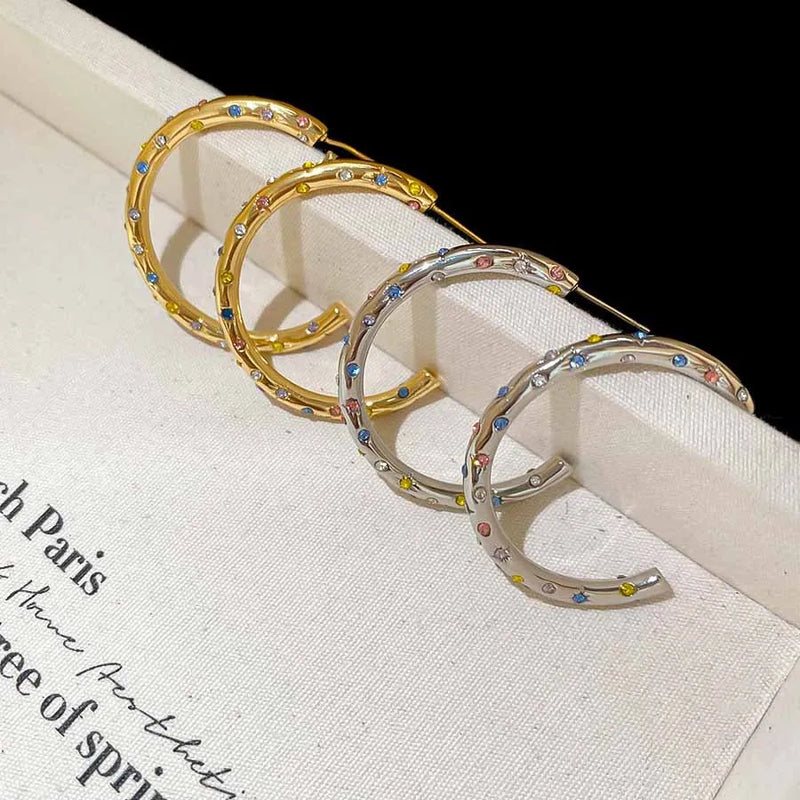 ch Paris
& Home Aestheti
ree of sprin